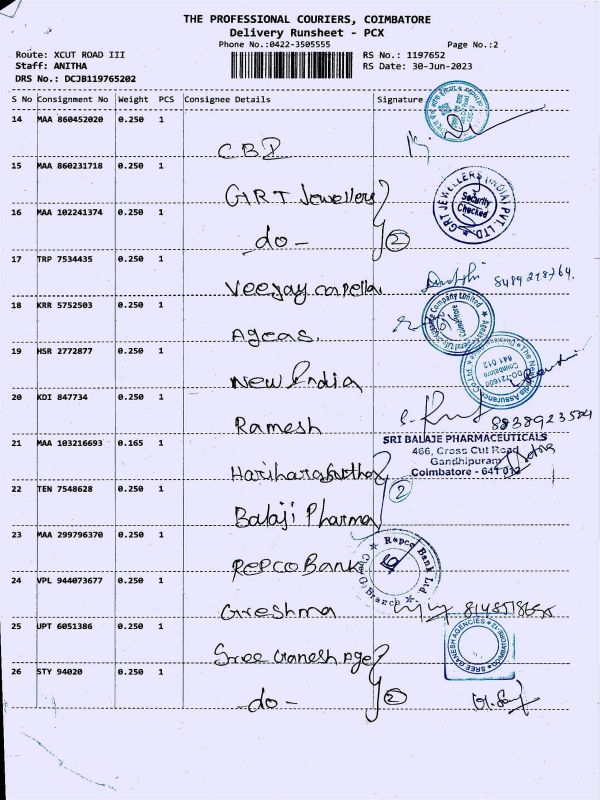 THE PROFESSIONAL COURIERS, COIMBATORE
Delivery Runsheet - PCX
Phone No.:0422-3505555
Page No.:2
Route: XCUT ROAD III
RS No.: 1197652
Staff: ANITHA
RS Date: 30-Jun-2023
DRS No.: DCJB119765202
S No Consignment No Weight PCS Consignee Details Signature
14 MAA 860452020 0.250 1
CBI
15 MAA 860231718 0.250 1
GRT Jewellers
GRT JEWELLERS (INDIA) PVT. LTD.
Security
Checked
16 MAA 102241374 0.250 1
-do-
2
17 TRP 7534435 0.250 1
Veejay
8489218764.
18 KRR 5752503 0.250 1
Ageas.
Coimbatore
19 HSR 2772877 0.250 1
New India
The New India Assurance Co. Ltd.
DO-721600
Coimbatore
641 012
20 KDI 847734 0.250 1
Ramesh
21 MAA 103216693 0.165 1
SRI BALAJE PHARMACEUTICALS
466, Cross Cut Road
Gandhipuram
Coimbatore - 641 012
22 TEN 7548628 0.250 1
2
Balaji Pharma
23 MAA 299796370 0.250 1
REPCO Bank
Repco Bank Ltd
24 VPL 944073677 0.250 1
Greshma
25 UPT 6051386 0.250 1
Sree Ganesh Age
SREE GANESH AGENCIES
COIMBATORE-12
26 STY 94020 0.250 1
-do-
2